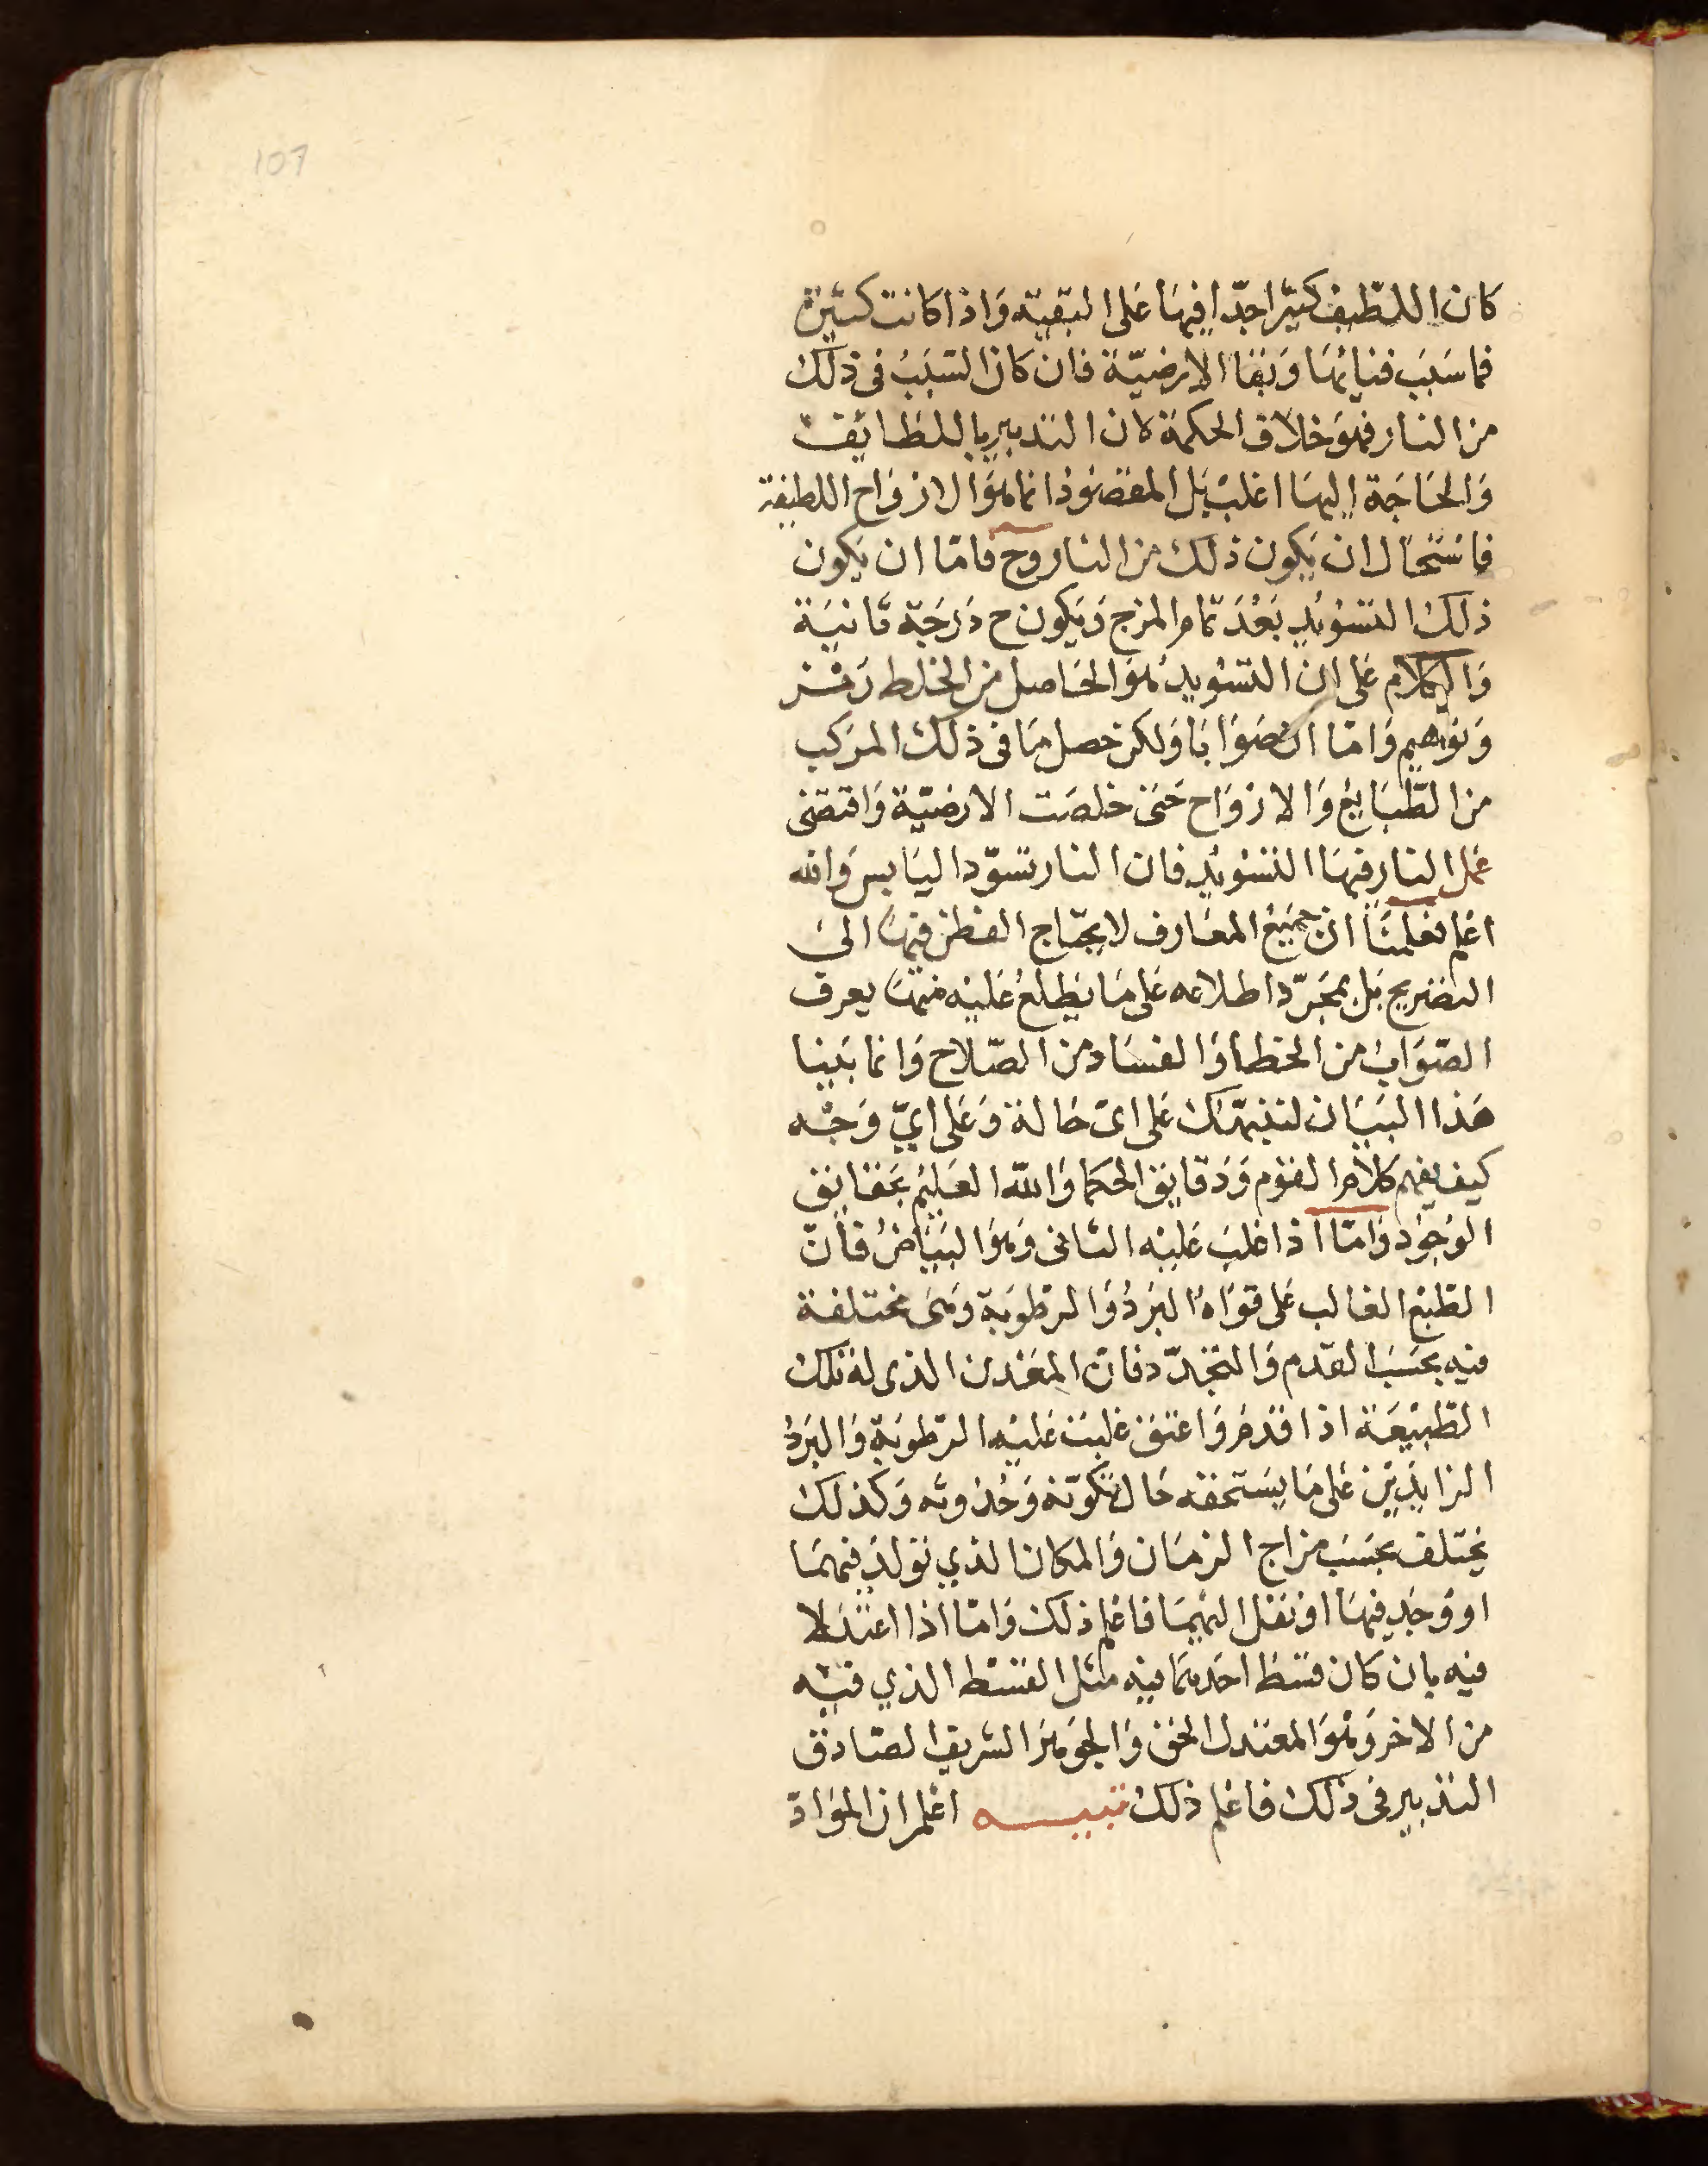 107
كان اللطيف كثيرا جدّا فيها على البقية وَاذا كانت كثيرة
فما سَبَب فنائهَا وَبَقا الارضيّة فان كان السَبَبُ فى ذلك
من النار فهوَ خلاف الحكمة لان التدبير باللطايف
وَالحَاجَة اليهَا اغلبْ بَل المقصُوْد انما هوَ الارْوَاح اللطيفة
فاسْتحَال ان يَكون ذلك من النار وح فامّا ان يكون
ذلك التسْوْيد بَعْدَ تمام المزج وَيَكون ح دَرَجَة ثانيَة
وَالكلام عَلى ان التسْويد هوَ الحَاصل من الخلط رَمْز
وَتوَهيم وَامّا ان صَوَابَا وَلكن حصل مَا فى ذلك المركب
من الطّبَايع وَالارْوَاح حَتى خلصَت الارضيّة وَاقتضى
عَمل النار فيهَا التسْويد فان النار تسوّد اليَابس وَالله
اعْلم فعَلمنَا ان جَميْع المعَارف لا يحتاج الفطن فيهَا الى
التصْريح بَل بمجَرّد اطلاعه عَلى مَا يَطلعُ عَليْه منهَا يعرف
الصّوَاب من الخطأ وَالفسَاد من الصّلاح وَانما بَينا
هَذا البَيَان لننبّهك عَلى اىّ حَالة وَعَلى ايّ وَجْه
كيف يفهم كلام القوْم وَدَقايق الحكما وَاللّه العَليْم بحَقايق
الوُجوْد وَامّا اذا غلبَ عَليْه الثانى وَهوَ البَيَاضُ فانّ
الطّبْع الغالب عَلى قوَاهُ البَرْدُ وَالرّطوبَة وَهىَ مختلفة
فيه بحَسَب القدم وَالتجَدّد فانّ المعْدن الذى له تلك
الطّبيْعَة اذا قدمَ وَاعتق غلبَت عَليْه الرّطوبَة وَالبَرْدُ
الزايدَيْن عَلى مَا يَستحقه حَال تكوّنه وَحُدوثه وَكذلك
يختلف بحَسَب مزاج الزمَان وَالمكان الذي توَلدَ فيهمَا
او وُجدَ فيهَا اوْ نقل اليْهمَا فاعْلم ذلك وَامّا اذا اعتدَلا
فيه بان كان قسْط احَدهمَا فيه مثل القسْط الذي فيْه
من الاخر وَهوَ المعتدل الحَق وَالجوهَر الشريف الصّادق
التدْبير فى ذلك فاعْلم ذلك تنبيـــه اعْلم ان الموَادّ